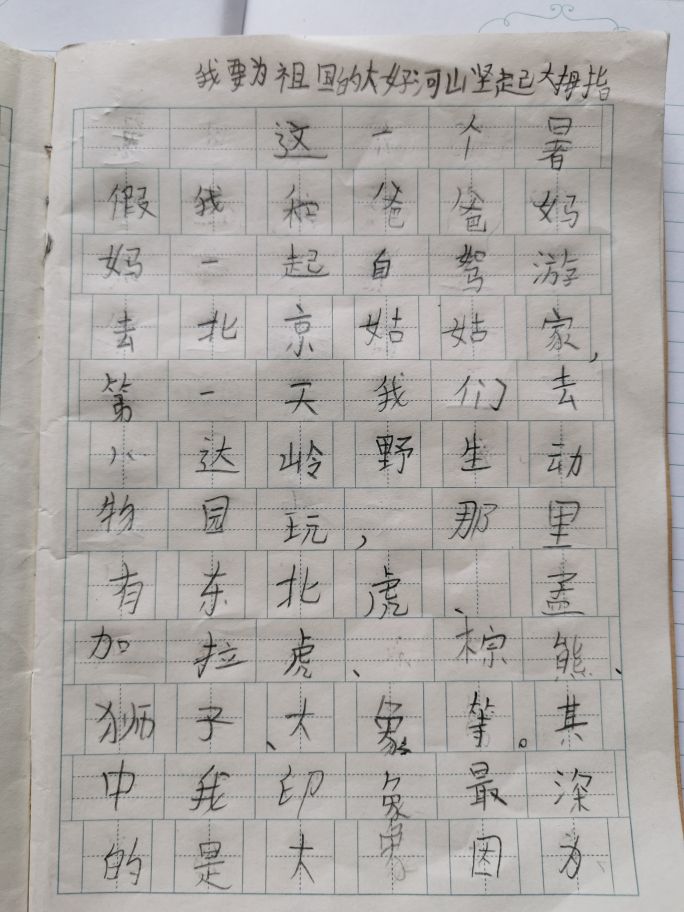 我要为祖国的大好河山坚起大拇指
这一个暑
假我和爸爸妈
妈一起自驾游
去北京姑姑家,
第一天我们去
八达岭野生动
物园玩,那里
有东北虎、孟
加拉虎、棕熊、
狮子、大象等。其
中我印象最深
的是大象因为